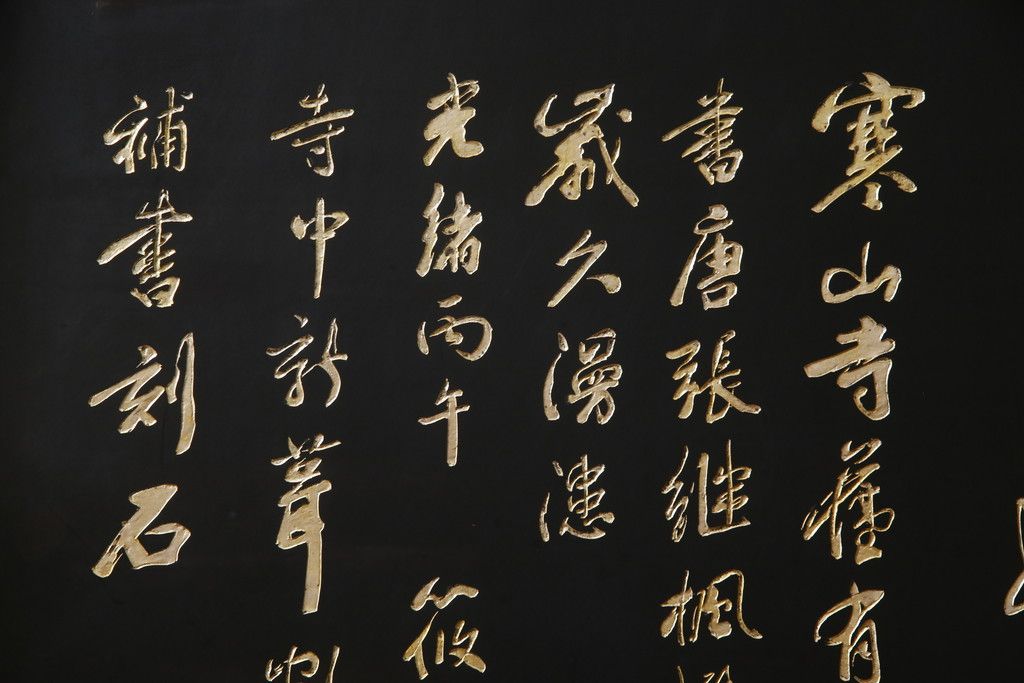 寒山寺旧有
書唐張継楓
歲久漫漶
光緒丙午 筱
寺中新葺
補書刻石